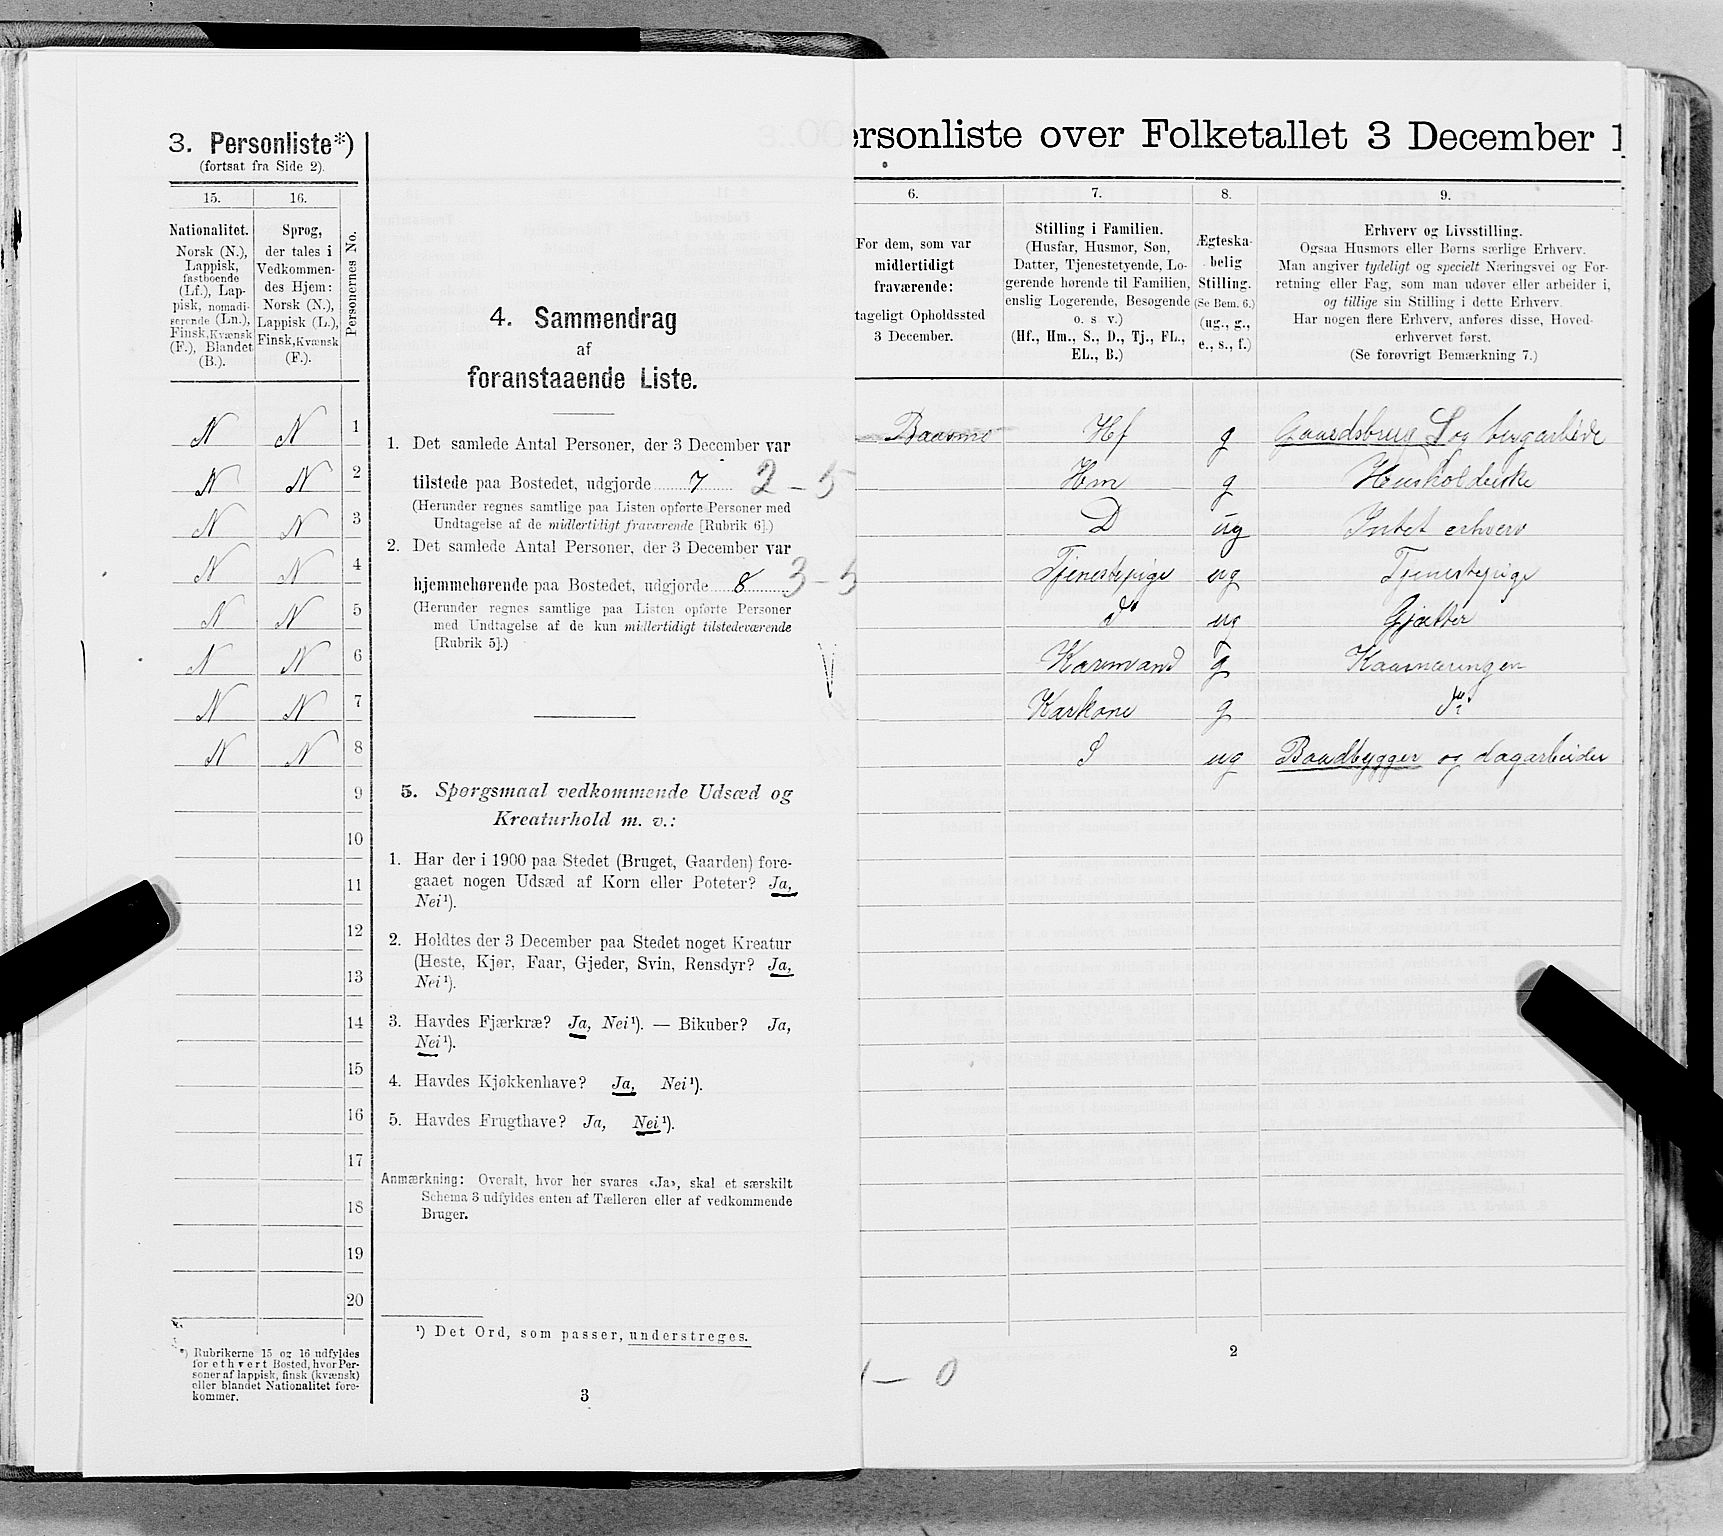 3. Personliste*)
(fortsat fra Side 2).
15.
16.
Personernes No.
Nationalitet.
Norsk (N.),
Lappisk,
fastboende
(Lf.), Lap-
pisk, nomadi-
serende (Ln.),
Finsk, Kvænsk
(F.), Blandet
(B.).
Sprog,
der tales i
Vedkommen-
des Hjem:
Norsk (N.),
Lappisk (L.),
Finsk, Kvænsk
(F.).
N N 1
N N 2
N N 3
N N 4
N N 5
N N 6
N N 7
N N 8
9
10
11
12
13
14
15
16
17
18
19
20
*) Rubrikerne 15 og 16 udfyldes
for ethvert Bosted, hvor Per-
soner af lappisk, finsk (kvænsk)
eller blandet Nationalitet fore-
kommer.
4. Sammendrag
af
foranstaaende Liste.
1. Det samlede Antal Personer, der 3 December var
tilstede paa Bostedet, udgjorde 7 2-5
(Herunder regnes samtlige paa Listen opførte Personer med
Undtagelse af de midlertidigt fraværende [Rubrik 6].)
2. Det samlede Antal Personer, der 3 December var
hjemmehørende paa Bostedet, udgjorde 8 3-5
(Herunder regnes samtlige paa Listen opførte Personer
med Undtagelse af de kun midlertidigt tilstedeværende
[Rubrik 5].)
5. Spørgsmaal vedkommende Udsæd og
Kreaturhold m. v.:
1. Har der i 1900 paa Stedet (Bruget, Gaarden) fore-
gaaet nogen Udsæd af Korn eller Poteter? Ja,
Nei¹).
2. Holdtes der 3 December paa Stedet noget Kreatur
(Heste, Kjør, Faar, Gjeder, Svin, Rensdyr? Ja,
Nei¹).
3. Havdes Fjærkræ? Ja, Nei¹). — Bikuber? Ja,
Nei¹).
4. Havdes Kjøkkenhave? Ja, Nei¹).
5. Havdes Frugthave? Ja, Nei¹).
Anmærkning: Overalt, hvor her svares «Ja», skal et særskilt
Schema 3 udfyldes enten af Tælleren eller af vedkommende
Bruger.
¹) Det Ord, som passer, understreges.
3
ersonliste over Folketallet 3 December 1
6.
7.
8.
9.
For dem, som var
midlertidigt
fraværende:
tageligt Opholdssted
3 December.
Stilling i Familien.
(Husfar, Husmor, Søn,
Datter, Tjenestetyende, Lo-
gerende hørende til Familien,
enslig Logerende, Besøgende
o. s v.)
(Hf., Hm., S., D., Tj., FL.,
EL., B.)
Ægteska-
belig
Stilling.
(Se Bem. 6.)
(ug., g.,
e., s., f.)
Erhverv og Livsstilling.
Ogsaa Husmors eller Børns særlige Erhverv.
Man angiver tydeligt og specielt Næringsvei og For-
retning eller Fag, som man udøver eller arbeider i,
og tillige sin Stilling i dette Erhverv.
Har nogen flere Erhverv, anføres disse, Hoved-
erhvervet først.
(Se forøvrigt Bemærkning 7.)
Baasmo Hf g Gaardsbrug S og bergarbeide
Hm g Husholderske
D ug Intet erhverv
Tjenestepige ug Tjenestepige
do ug Gjætter
Kaarmand g Kaarnæringen
Karkone g do
S ug Baadbygger og dagarbeider
2
— 0